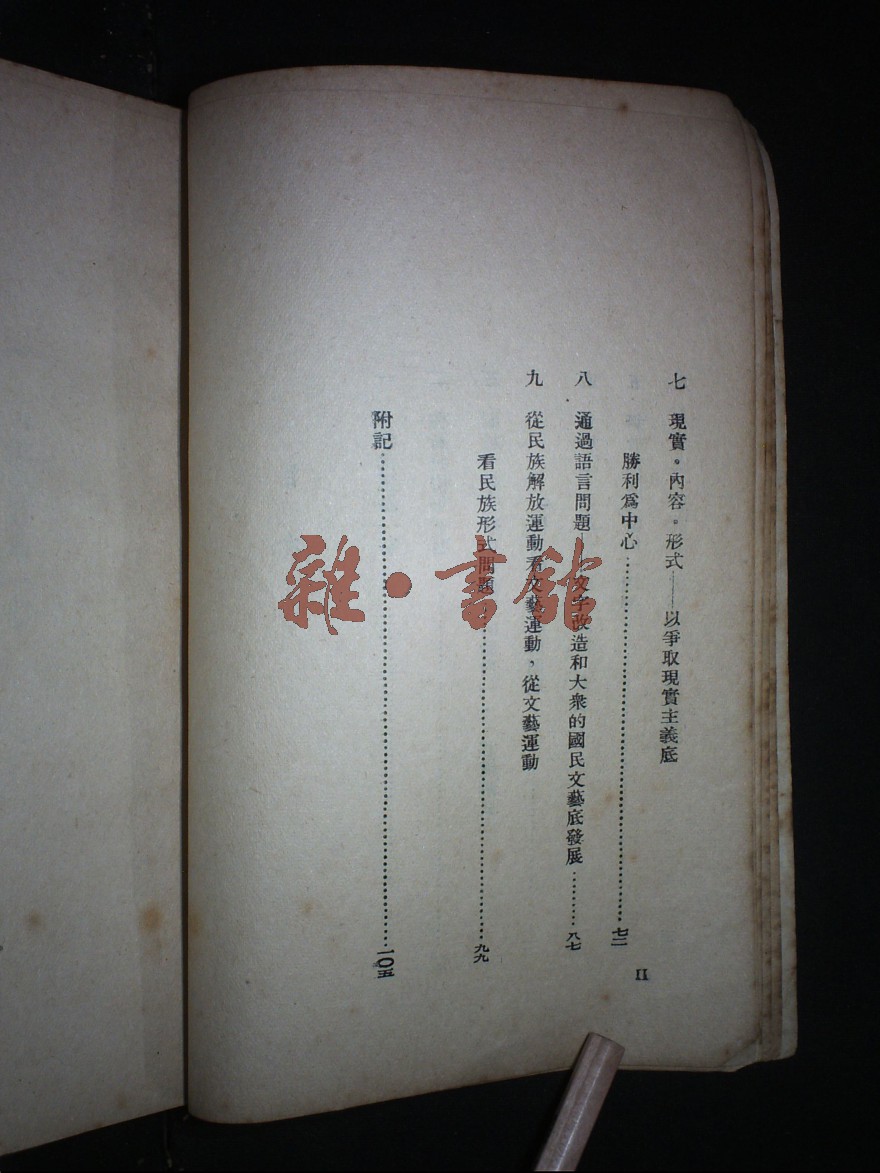 七　現實。內容。形式——以爭取現實主義底
勝利爲中心……七二
八　通過語言問題——文字改造和大衆的國民文藝底發展……八七
九　從民族解放運動看文藝運動，從文藝運動
看民族形式問題……九九
附記……一〇五
II
雜·書館